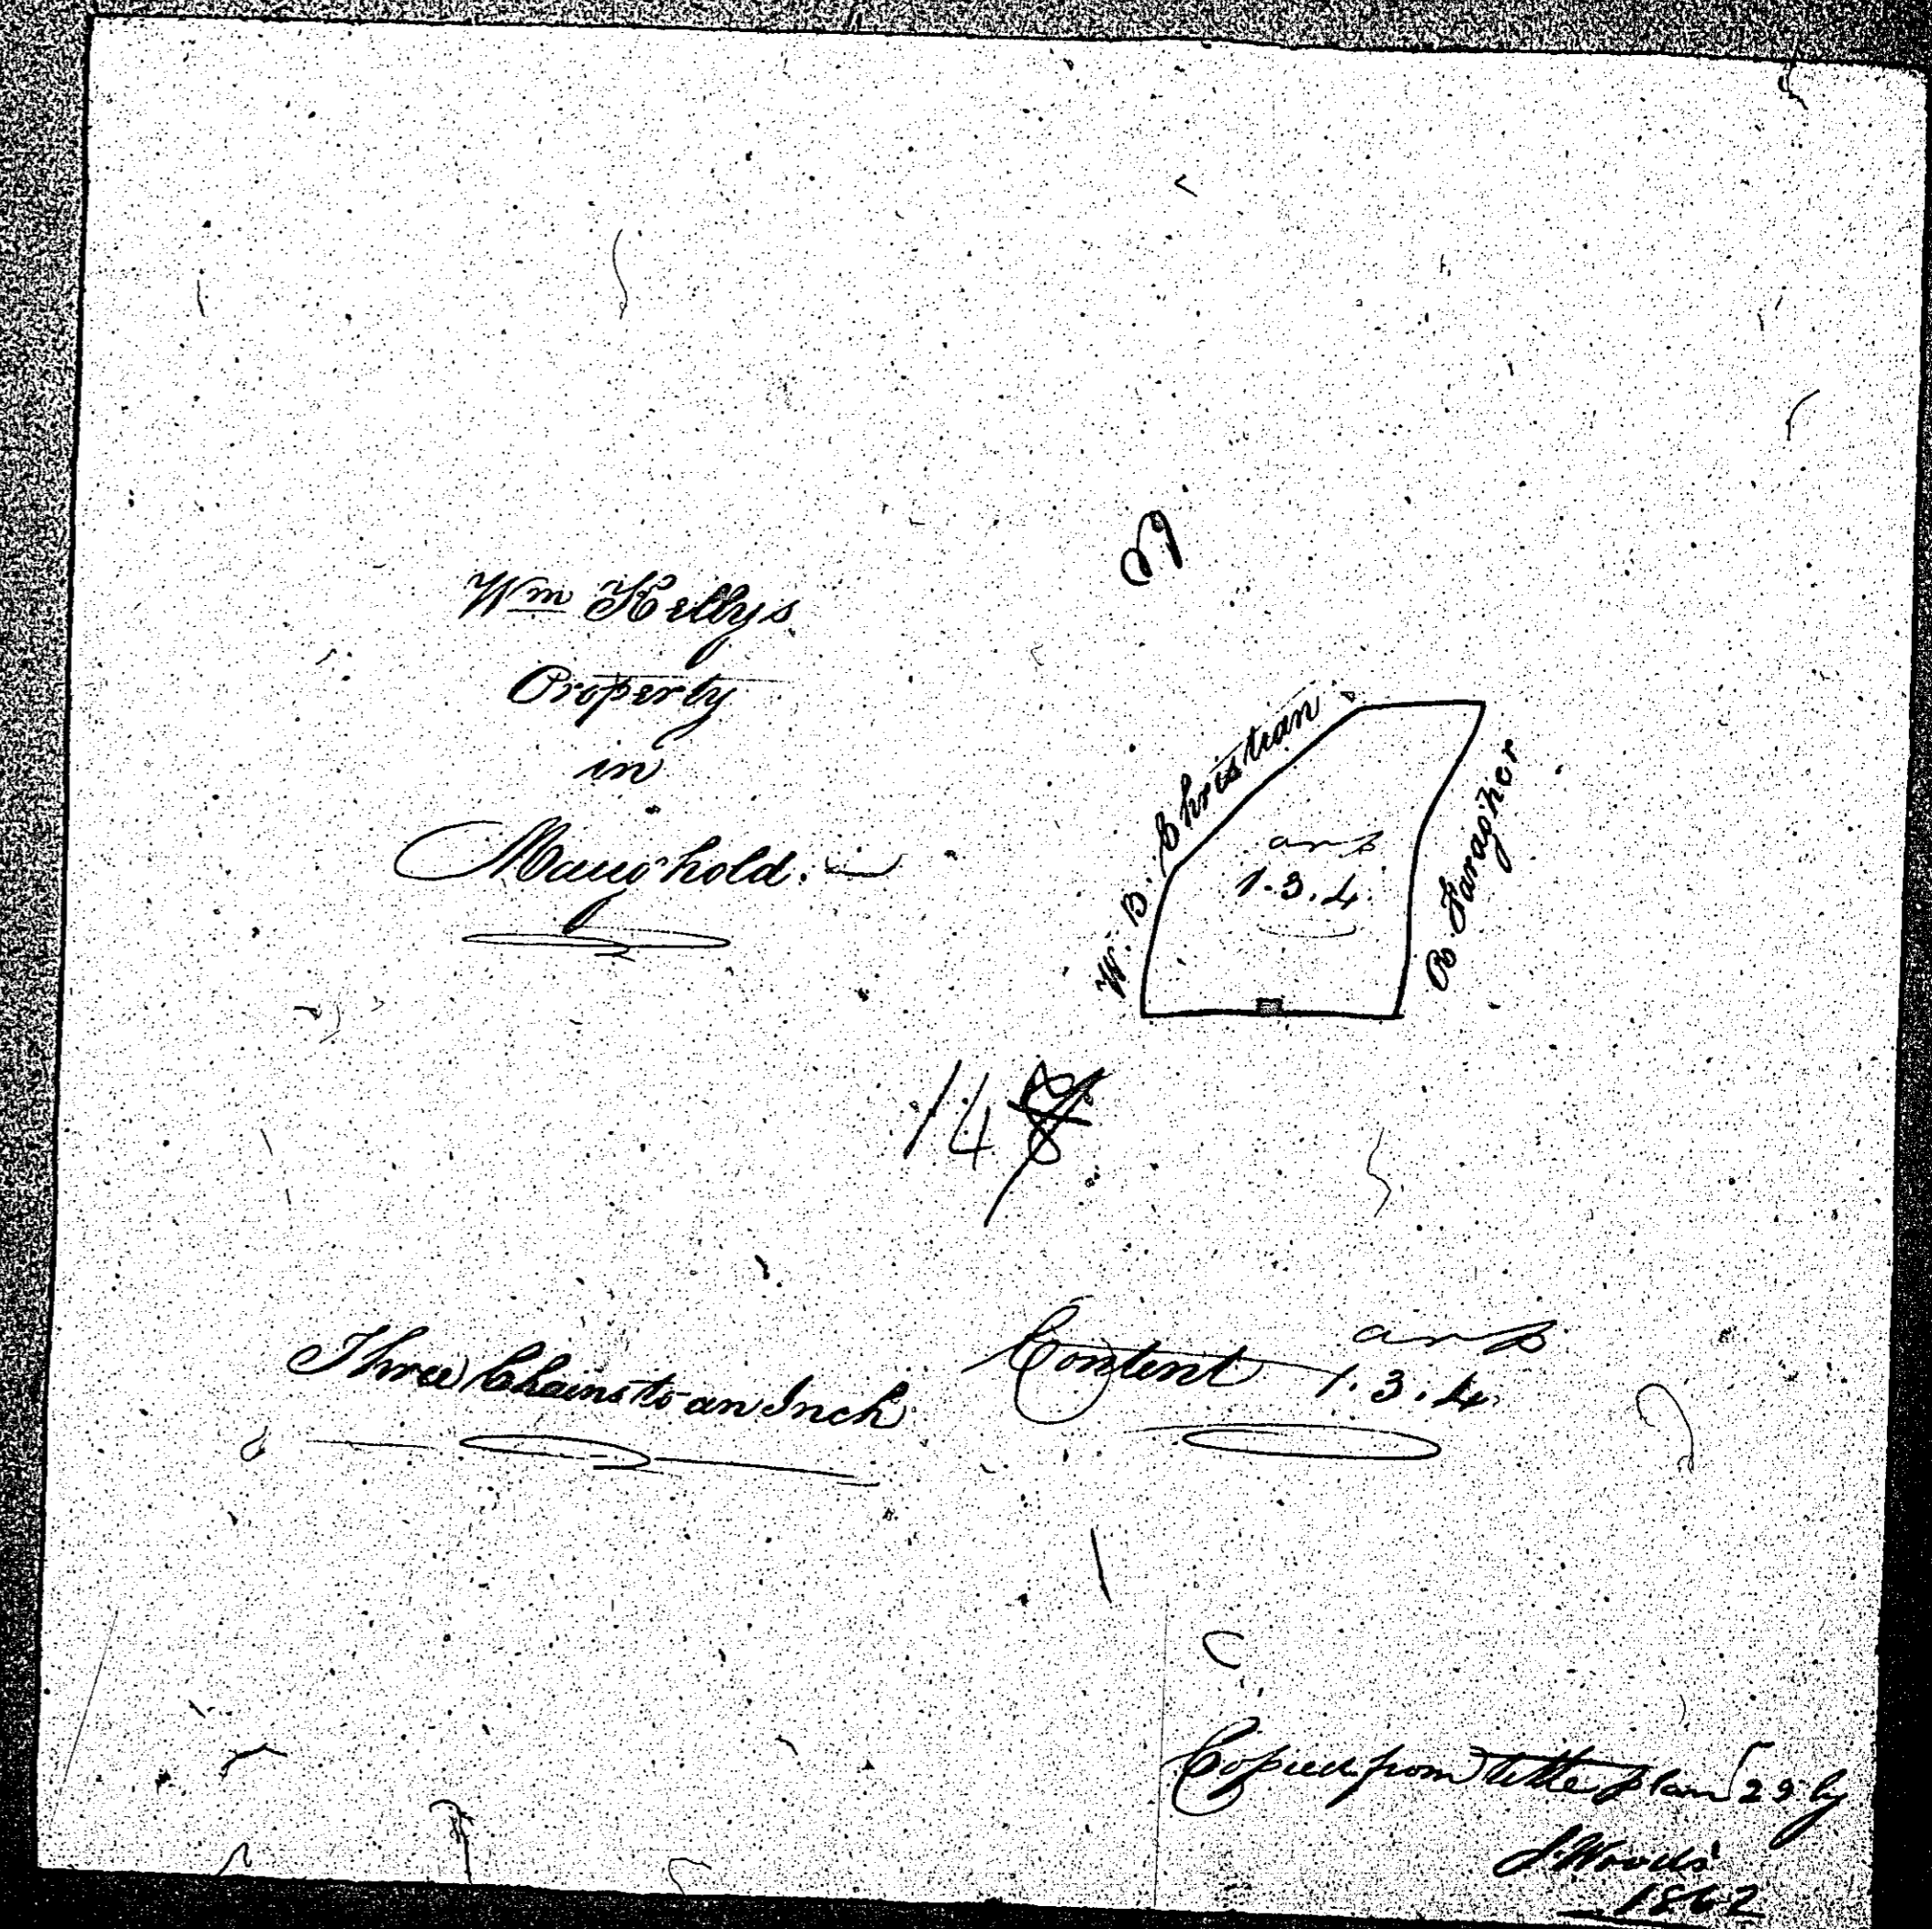 Wm Kellys
Property
in
Maughold.
W. B. Christian
a r p
1.3.4.
R. Faragher
14
Three Chains to an Inch
Content a r p
1.3.4.
Copied from tithe plan 29 by
J. Woods
1862